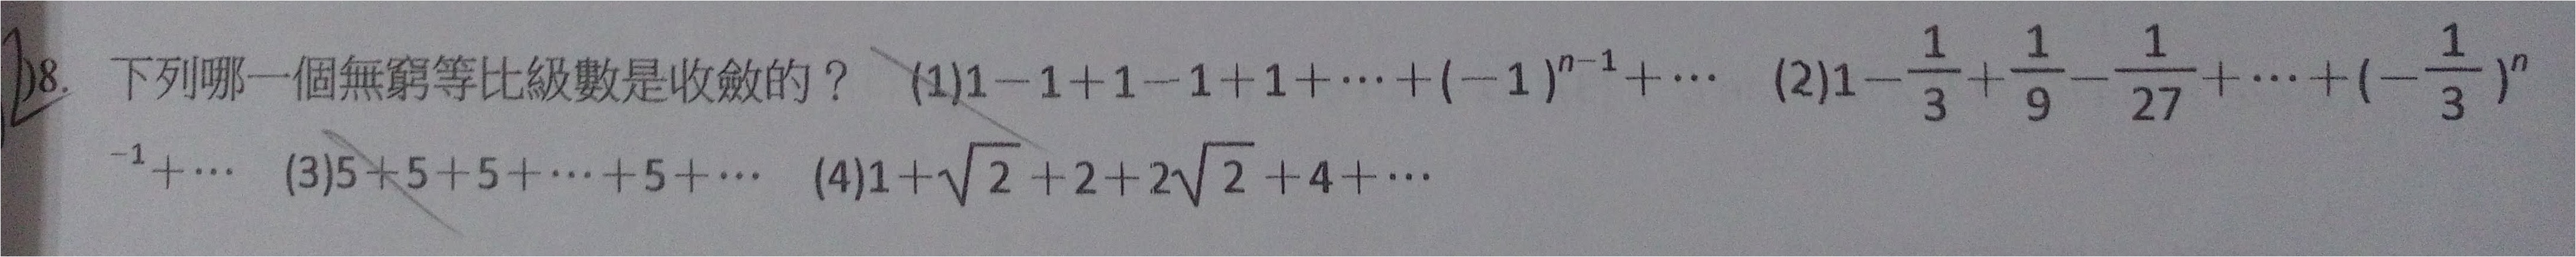 18. 下列哪一個無窮等比級數是收斂的？ (1)1－1＋1－1＋1＋⋯＋(－1)ⁿ⁻¹＋⋯ (2)1－1/3＋1/9－1/27＋⋯＋(－1/3)ⁿ
⁻¹＋⋯ (3)5＋5＋5＋⋯＋5＋⋯ (4)1＋√2＋2＋2√2＋4＋⋯